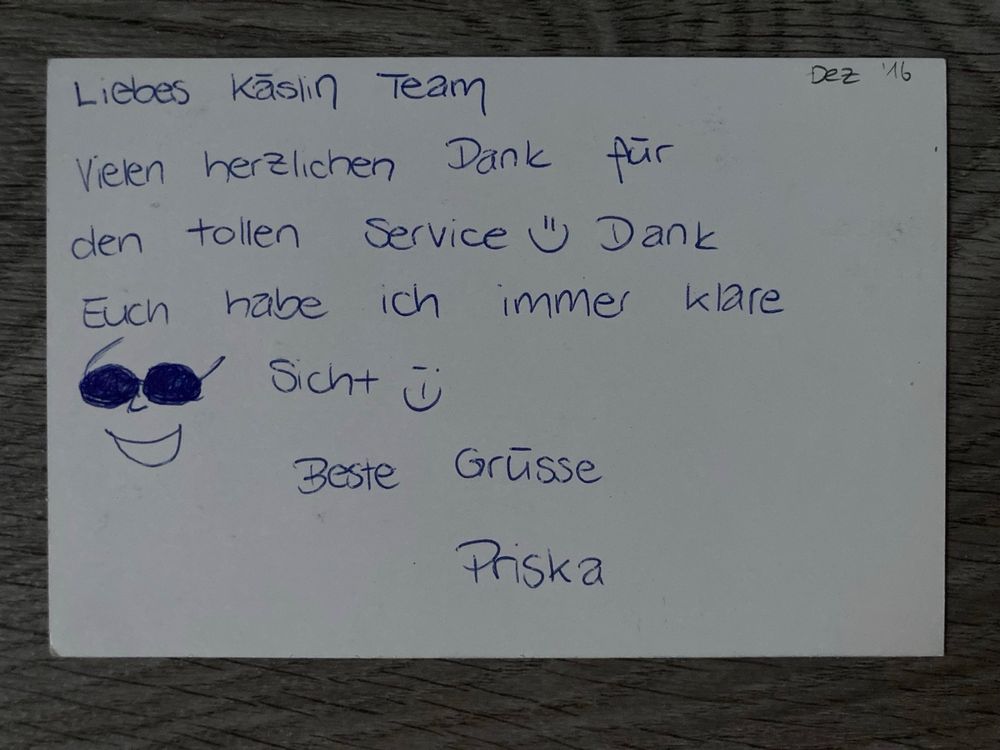 Dez '16
Liebes Käslin Team
Vielen herzlichen Dank für
den tollen Service Dank
Euch habe ich immer klare
Sicht
Beste Grüsse
Priska